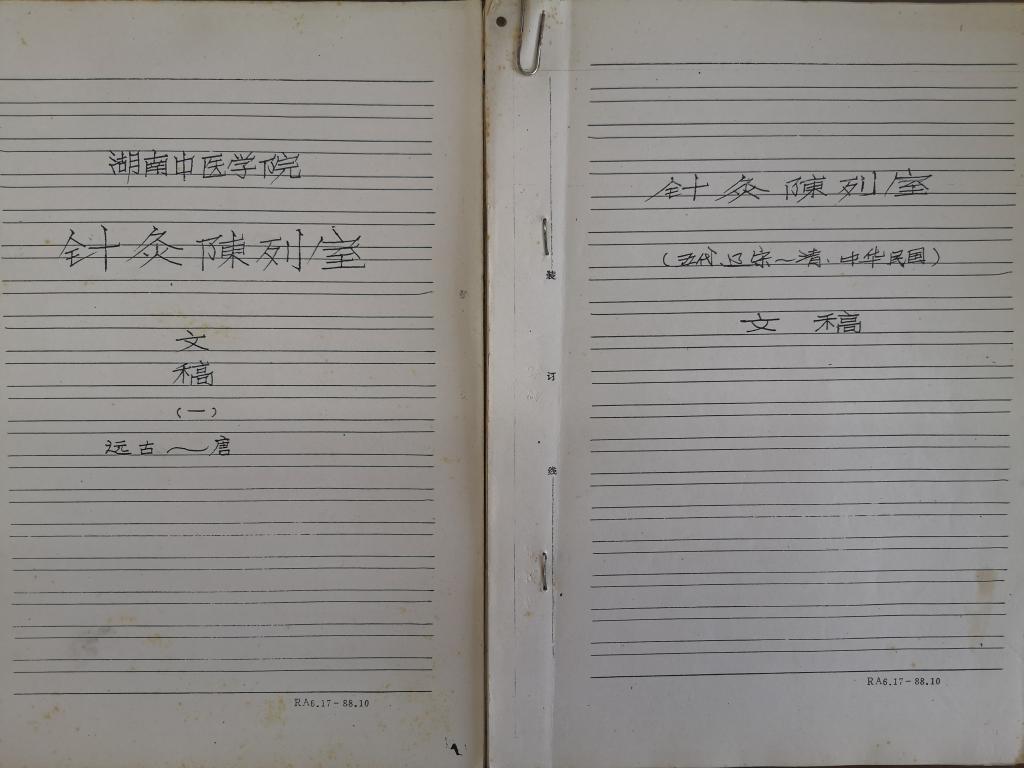 湖南中医学院
针灸陳列室
文
稿
(一)
远古～唐
RA6.17-88.10
针灸陳列室
(五代、辽宋～清、中华民国)
文 稿
装
订
线
RA6.17-88.10